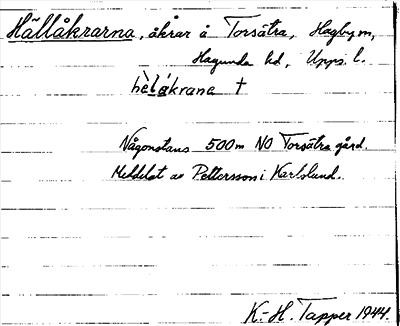 Hällåkrarna, åkrar å Torsätra, Hagby sn,
Hagunda hd, Upps. l.
hèlákrana †
Någonstans 500m NO Torsätra gård.
Meddelat av Pettersson i Karlslund.
K.-H. Tapper 1944.